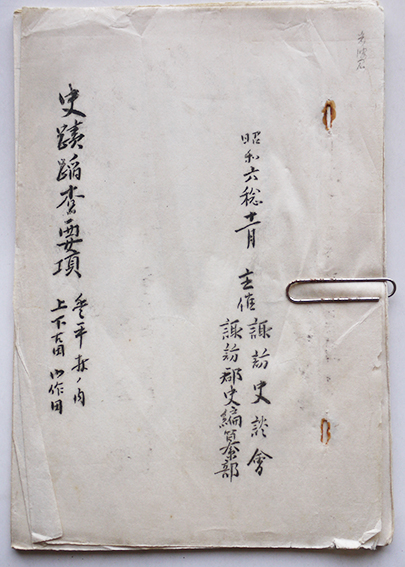 昭和六稔十一月 主催 諏訪史談會
諏訪郡史編纂部
史蹟蹈査要項 豊平村ノ内
上下古田 御作田